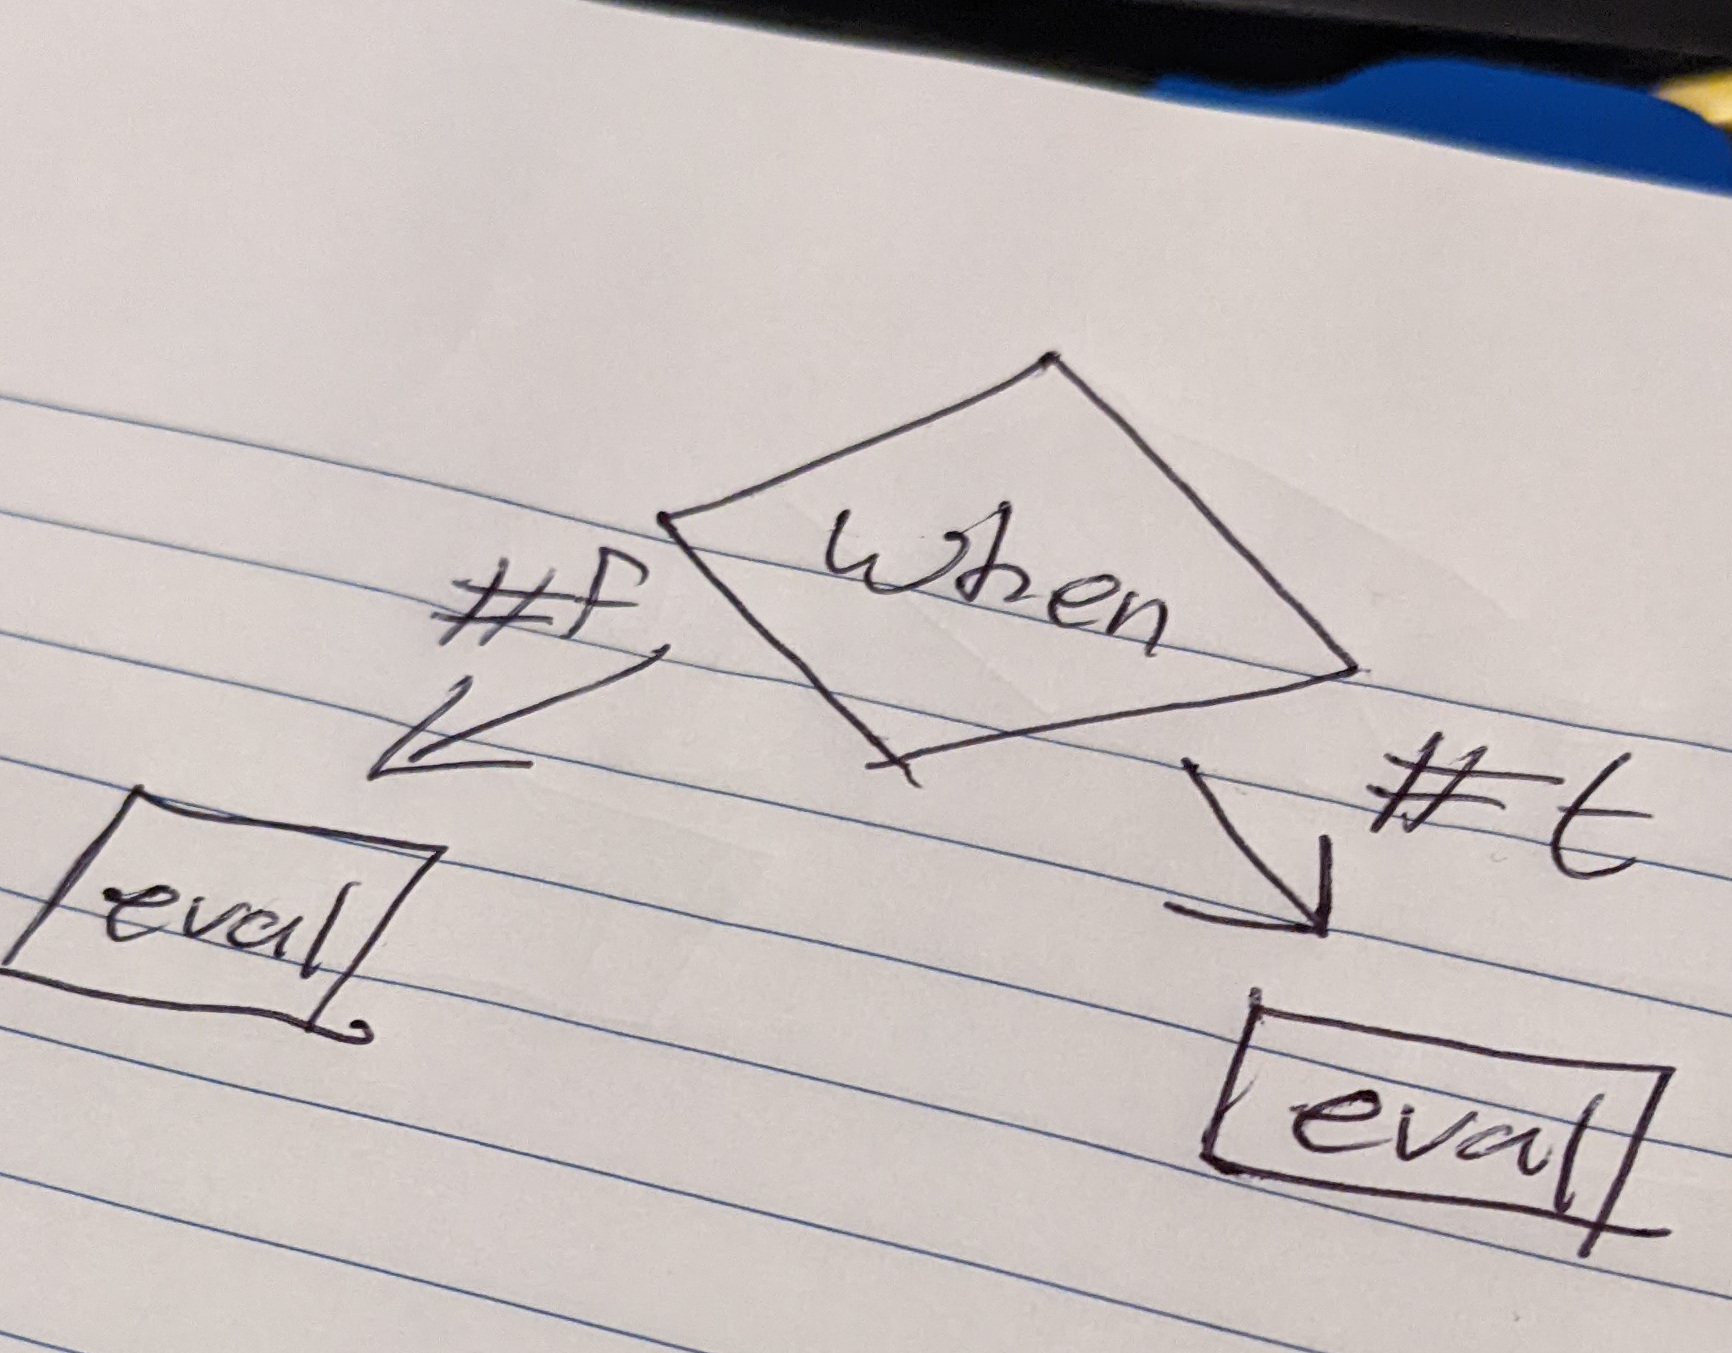 when
#f
#t
eval
eval